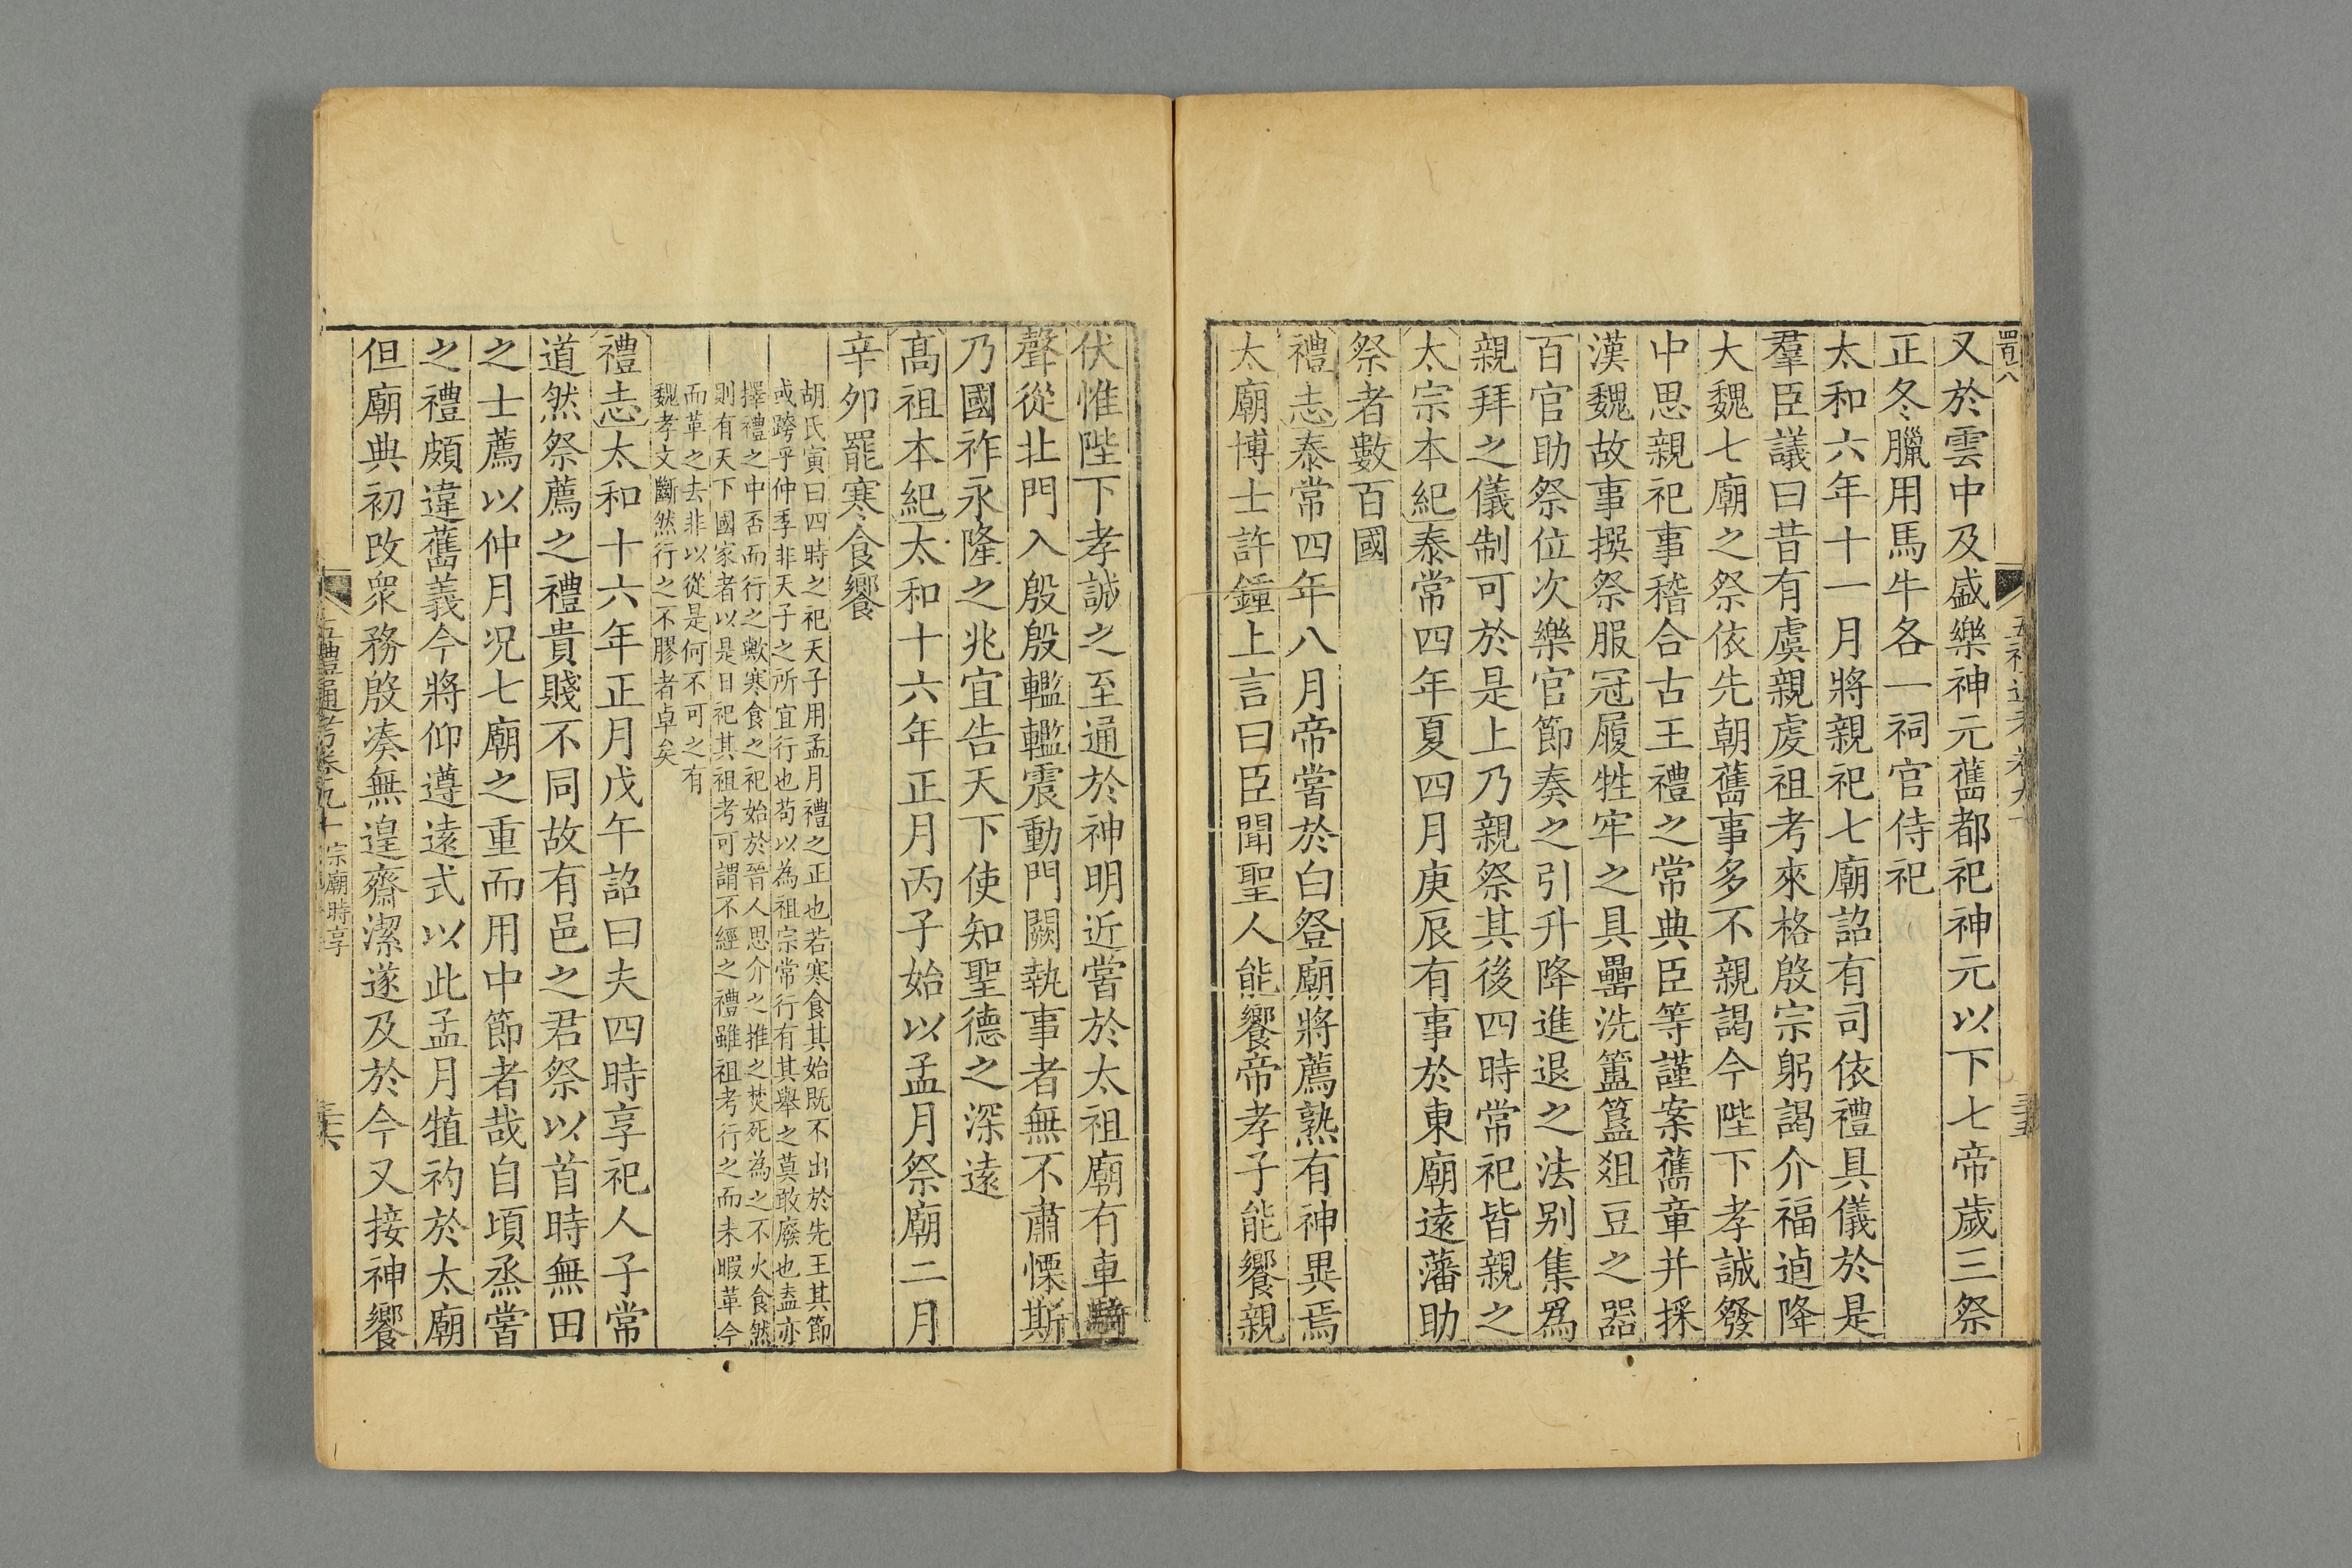 又於雲中及盛樂神元舊都祀神元以下七帝歲三祭
正冬臘用馬牛各一祠官侍祀
太和六年十一月將親祀七廟詔有司依禮具儀於是
羣臣議曰昔有虞親虔祖考來格殷宗躬謁介福逌降
大魏七廟之祭依先朝舊事多不親謁今陛下孝誠發
中思親祀事稽合古王禮之常典臣等謹案舊章并採
漢魏故事撰祭服冠履牲牢之具罍洗簠簋俎豆之器
百官助祭位次樂官節奏之引升降進退之法别集爲
親拜之儀制可於是上乃親祭其後四時常祀皆親之
太宗本紀泰常四年夏四月庚辰有事於東廟遠藩助
祭者數百國
禮志泰常四年八月帝嘗於白登廟將薦熟有神異焉
太廟博士許鍾上言曰臣聞聖人能饗帝孝子能饗親
伏惟陛下孝誠之至通於神明近嘗於太祖廟有車騎
聲從北門入殷殷轞轞震動門闕執事者無不肅慄斯
乃國祚永隆之兆宜告天下使知聖德之深遠
髙祖本紀太和十六年正月丙子始以孟月祭廟二月
辛夘罷寒食饗
胡氏寅曰四時之祀天子用孟月禮之正也若寒食其始既不出於先王其節
或跨乎仲季非天子之所宜行也苟以為祖宗常行有其舉之莫敢廢也盍亦
擇禮之中否而行之歟寒食之祀始於晉人思介之推之焚死為之不火食然
則有天下國家者以是日祀其祖考可謂不經之禮雖祖考行之而未暇革今
而革之去非以從是何不可之有
魏孝文斷然行之不膠者卓矣
禮志太和十六年正月戊午詔曰夫四時享祀人子常
道然祭薦之禮貴賤不同故有邑之君祭以首時無田
之士薦以仲月况七廟之重而用中節者哉自頃烝嘗
之禮頗違舊義今將仰遵遠式以此孟月犆礿於太廟
但廟典初改衆務殷凑無遑齋潔遂及於今又接神饗
五禮通考卷九十 宗廟時享